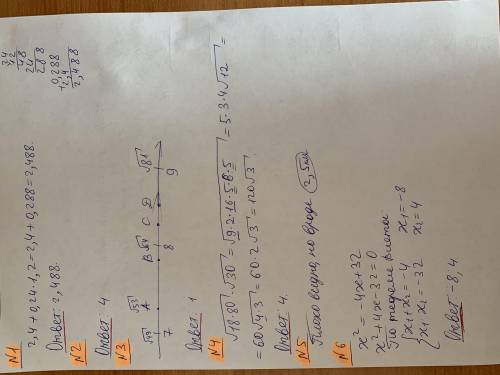 N1
2,4 + 0,24·1,2 = 2,4 + 0,288 = 2,488.
Ответ: 2,488.
24
42
48
24
288
0,288
+2,4
2,488
N2
Ответ: 4
N3
√49 √53 √64 √81
A B C D
7 8 9
Ответ: 1
N4
√18·80 · √30 = √9·2·16·5·6·5 = 5·3·4√12 =
= 60√4·3 = 60·2√3 = 120√3
Ответ: 4.
N5
Плохо видно, но вроде 2,5
N6
x² = -4x + 32
x² + 4x - 32 = 0
По теореме Виета:
x₁ + x₂ = -4 x₁ = -8
x₁ x₂ = -32 x₂ = 4
Ответ -8; 4